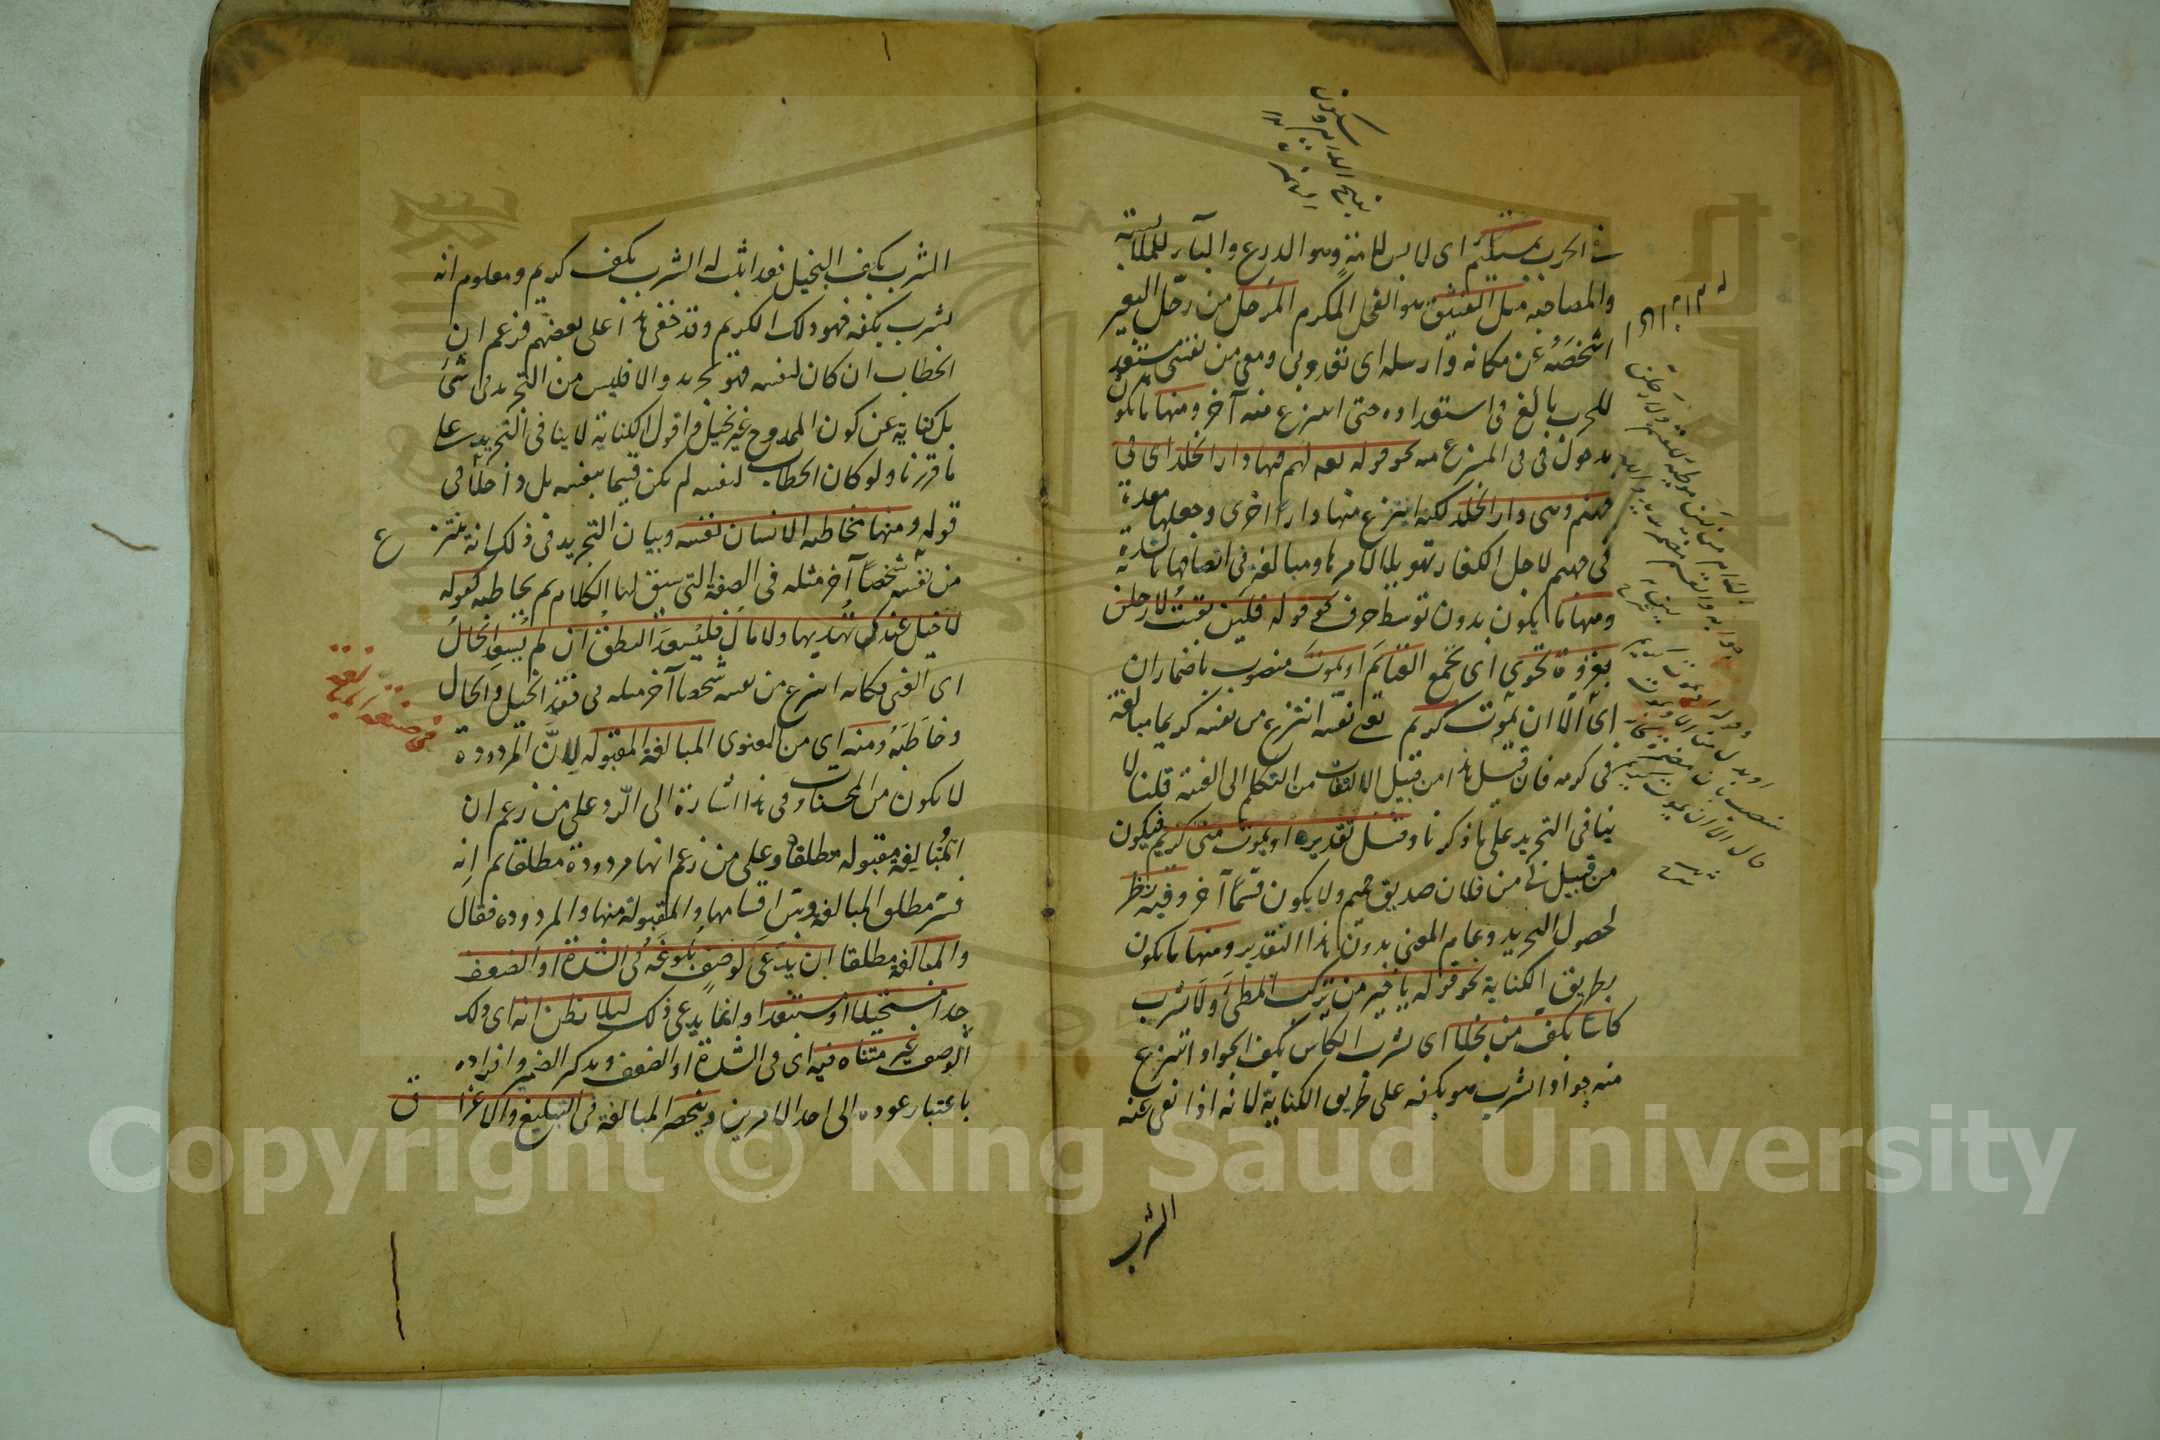 في الحرب بمستلئم اى لابس لامة وهو الدرع والباء للملابسة
والمصاحبة مثل الفنيق هو الفحل المكرم المرحل من رحّل البعير
اشخصَهُ عن مكانه وارسله اى تعدو بى ومعى من نفسى مستعد
للحرب بالغ فى استعداده حتى انتزع منه آخر ومنها ما يكون
بدخول فى فى المنتزع منه نحو قوله تعه لهم فيها دار الخلد اى فى
جهنم وهى دار الخلد لكنه انتزع منها دارا اخرى وجعلها معدة
فى جهنم لاجل الكفار تهويلا لامرها ومبالغة فى اتصافها بالشدة
ومنها ما يكون بدون توسط حرف نحو قوله فلئن بقيتُ لارحلن
بغزوة تحوى اى تجمع الغنائم او يموتَ منصوب باضمار ان
اى الّا ان يموت كريم يعنى نفسه انتزع من نفسه كريما مبالغة
فى كرمه فان قيل هذا من قبيل الالتفات من التكلم الى الغيبة قلنا لا
ينافى التجريد على ما ذكرنا وقيل تقديره او يموت منى كريم فيكون
من قبيل لى من فلان صديق حميم ولا يكون قسماً آخر وفيه نظر
لحصول التجريد وتمام المعنى بدون هذا التقدير ومنها ما يكون
بطريق الكناية نحو قوله يا خير من يركب المطىَّ ولا يشرب
كاسًا بكفّ من بخلا اى يشرب الكاس بكف الجواد انتزع
منه جوادا يشرب هو بكفه على طريق الكناية لانه اذا نفى عنه
الشرب
الشرب بكف البخيل فقد اثبت له الشرب بكف كريم ومعلوم انه
يشرب بكفه فهو ذلك الكريم وقد خفى هذا على بعضهم فزعم ان
الخطاب ان كان لنفسه فهو تجريد والا فليس من التجريد فى شئ
بل كناية عن كون الممدوح غير بخيل واقول الكناية لا ينافى التجريد على
ما قررنا ولو كان الخطاب لنفسه لم يكن قسما بنفسه بل داخلا فى
قوله ومنها مخاطبة الانسان نفسه وبيان التجريد فى ذلك انه ينتزع
من نفسه شخصاً آخر مثله فى الصفة التى سيق لها الكلام ثم يخاطبه كقوله
لا خيل عندك تُهديها ولا مال فليسعد النطق ان لم يُسعد الحال
اى الغنى فكانه انتزع من نفسه شخصا آخر مثله فى فقد الخيل والحال
وخاطَبَهُ ومنه اى من المعنوى المبالغة المقبولة لانّ المردودة
لا يكون من المحسنات وفى هذا اشارة الى الرد على من زعم ان
المُبالغة مقبولة مطلقا وعلى من زعم انها مردودة مطلقا ثم انه
فسر مطلق المبالغة وبيّن اقسامها والمقبولة منها والمردودة فقال
والمبالغة مطلقا ان يدّعى لوصف بلوغه فى الشدة او الضعف
حدا مستحيلا او مستبعدا وانما يدعى ذلك لئلا يظن انه اى ذلك
الوصف غير متناه فيه اى فى الشدة او الضعف وتذكير الضمير وافراده
باعتبار عوده الى احد الامرين وينحصر المبالغة فى التبليغ والاغراق
Copyright © King Saud University